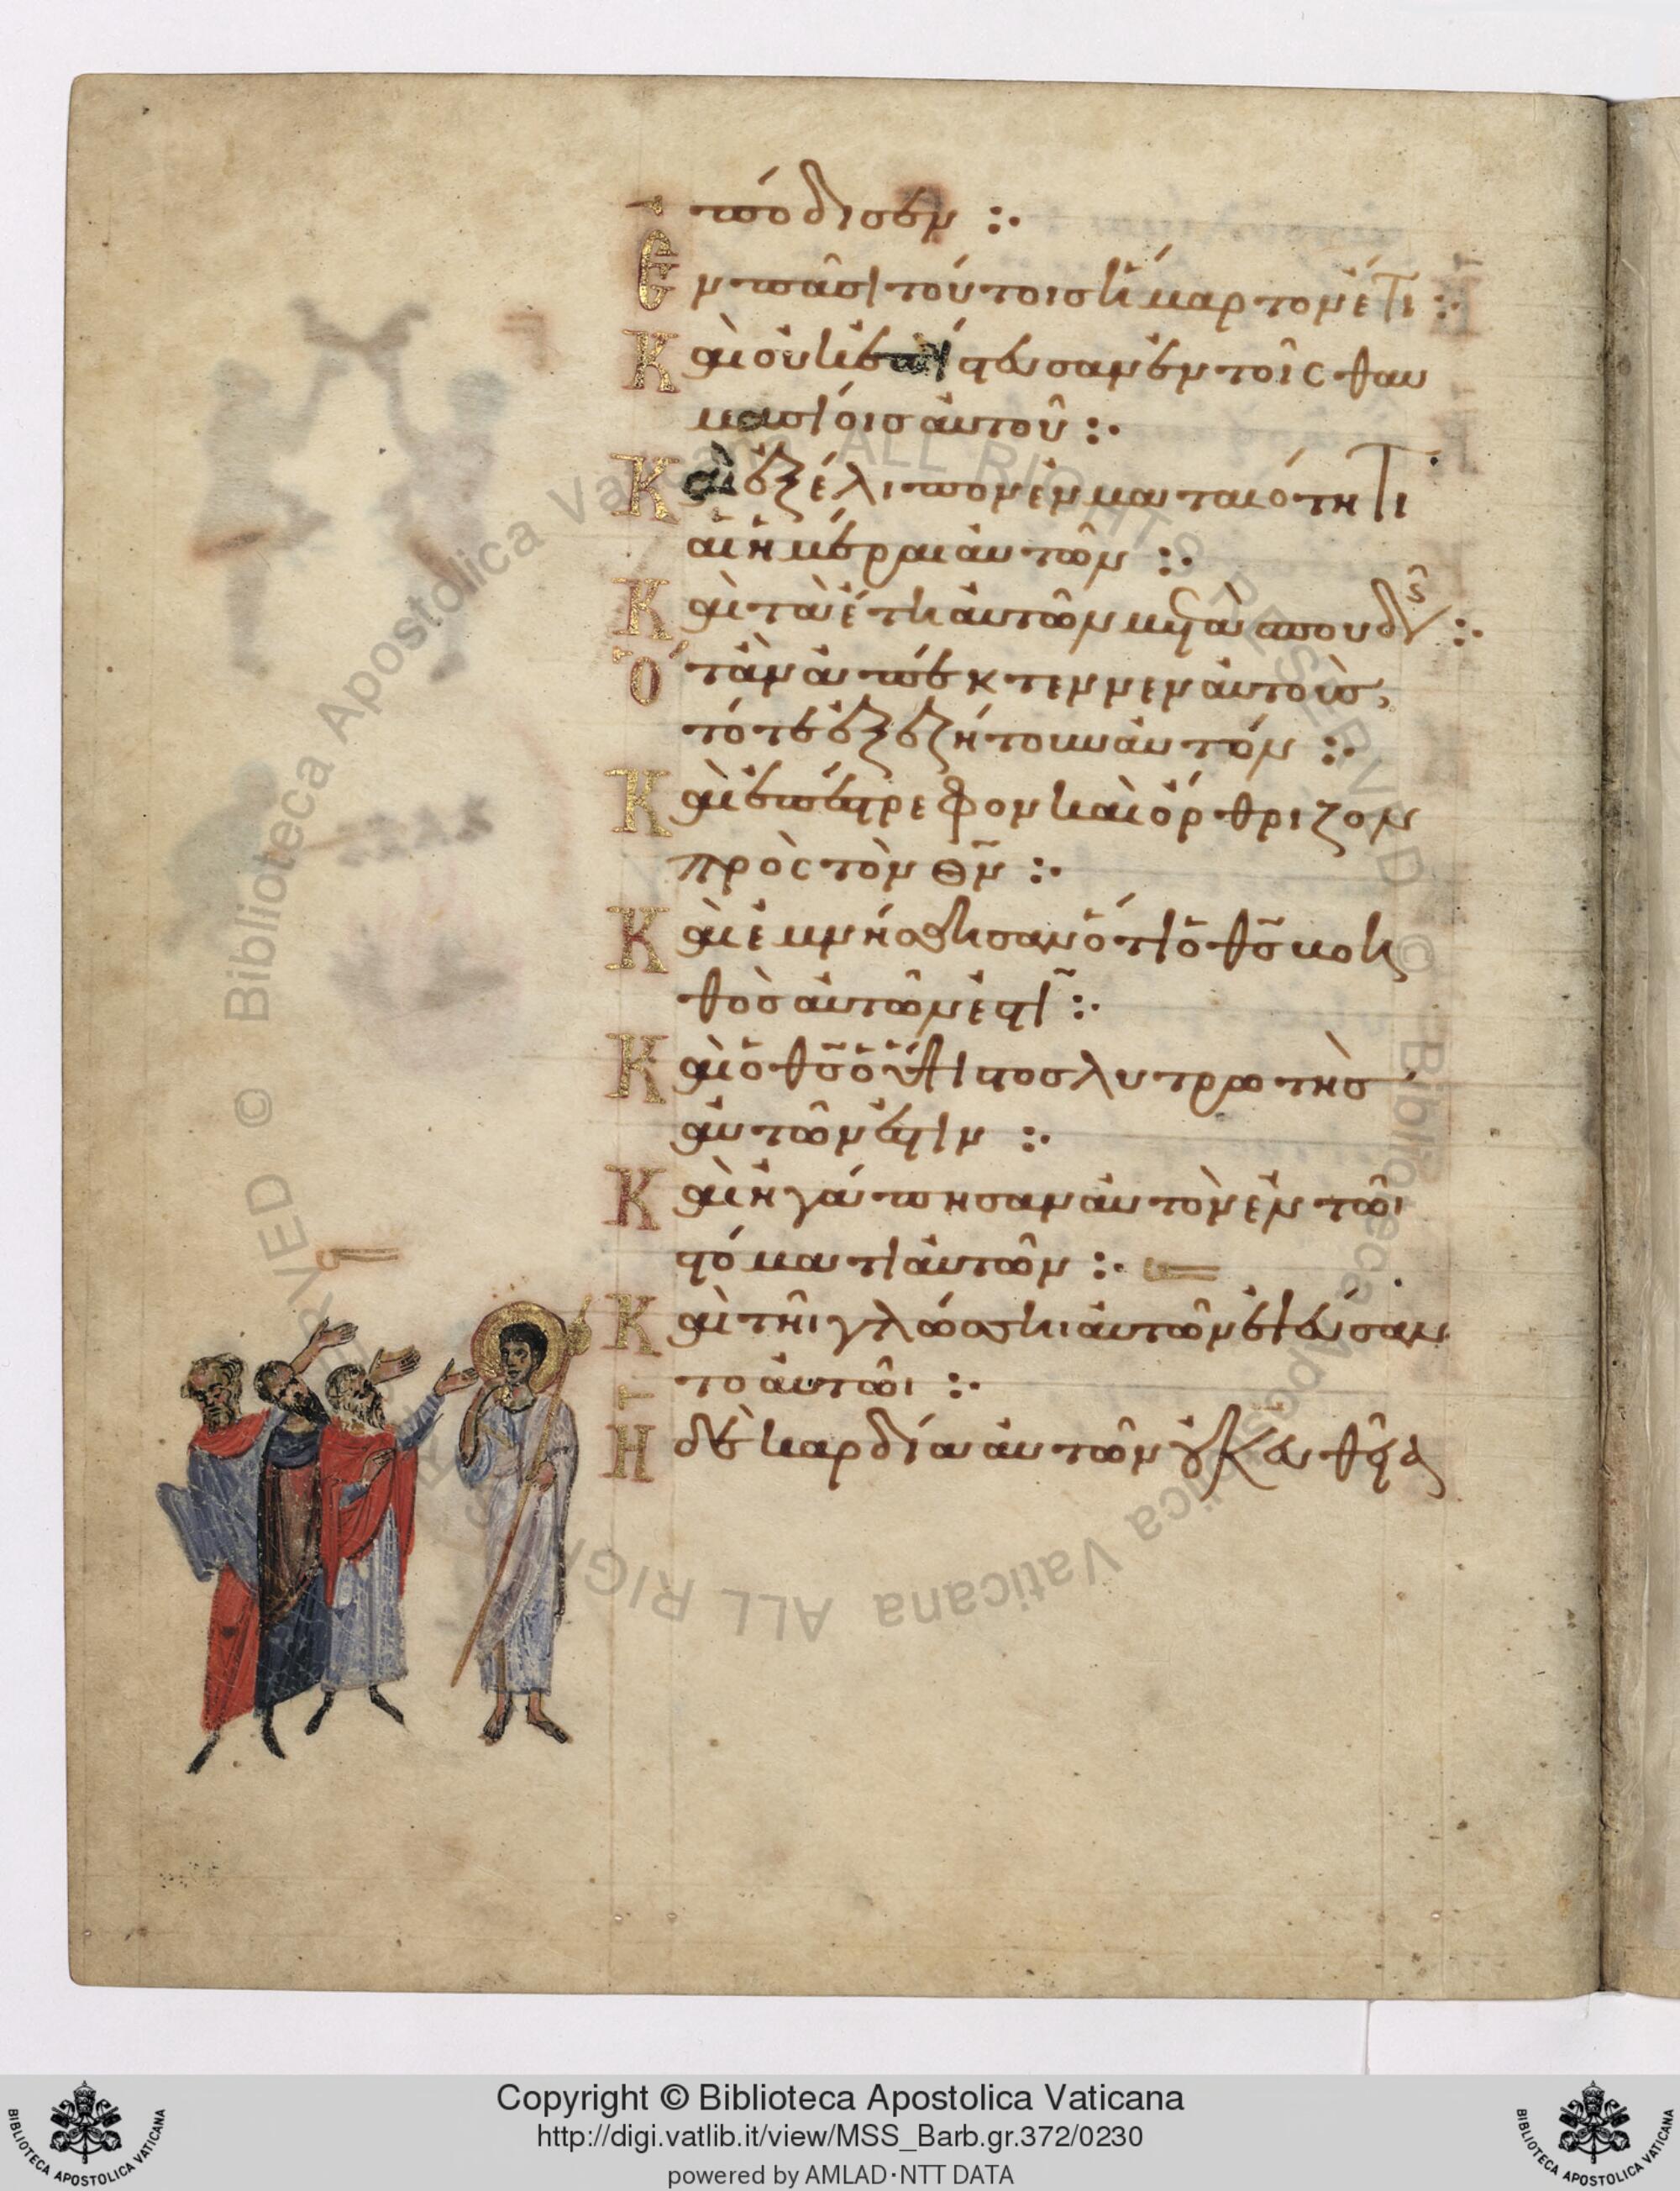 πόδισεν :·
Ἐν πᾶσι τούτοις ἥμαρτον ἔτι :·
Καὶ οὐκ ἐπίστευσαν ἐν τοῖς θαυ
μασίοις αὐτοῦ :·
Καὶ ἐξέλιπον ἐν ματαιότητι
αἱ ἡμέραι αὐτῶν :·
Καὶ τὰ ἔτη αὐτῶν μετὰ σπουδῆς :·
Ὅταν ἀπέκτεννεν αὐτοὺς,
τότε ἐξεζήτουν αὐτόν :·
Καὶ ἐπέστρεφον καὶ ὄρθριζον
πρὸς τὸν θν :·
Καὶ ἐμνήσθησαν ὅτι ὁ θς βοη
θὸς αὐτῶν ἐστι :·
Καὶ ὁ θς ὁ ὕψιστος λυτρωτὴς
αὐτῶν ἐστιν :·
Καὶ ἠγάπησαν αὐτὸν ἐν τῶι
στόματι αὐτῶν :·
Καὶ τῆι γλώσσηι αὐτῶν ἐψεύσαν
το αὐτῶι :·
Ἡ δὲ καρδία αὐτῶν οὐκ εὐθεῖα
© Biblioteca Apostolica Vaticana ALL RIGHTS RESERVED © Biblioteca Apostolica Vaticana ALL RIGHTS RESERVED
Copyright © Biblioteca Apostolica Vaticana
http://digi.vatlib.it/view/MSS_Barb.gr.372/0230
powered by AMLAD·NTT DATA
BIBLIOTECA APOSTOLICA VATICANA
BIBLIOTECA APOSTOLICA VATICANA